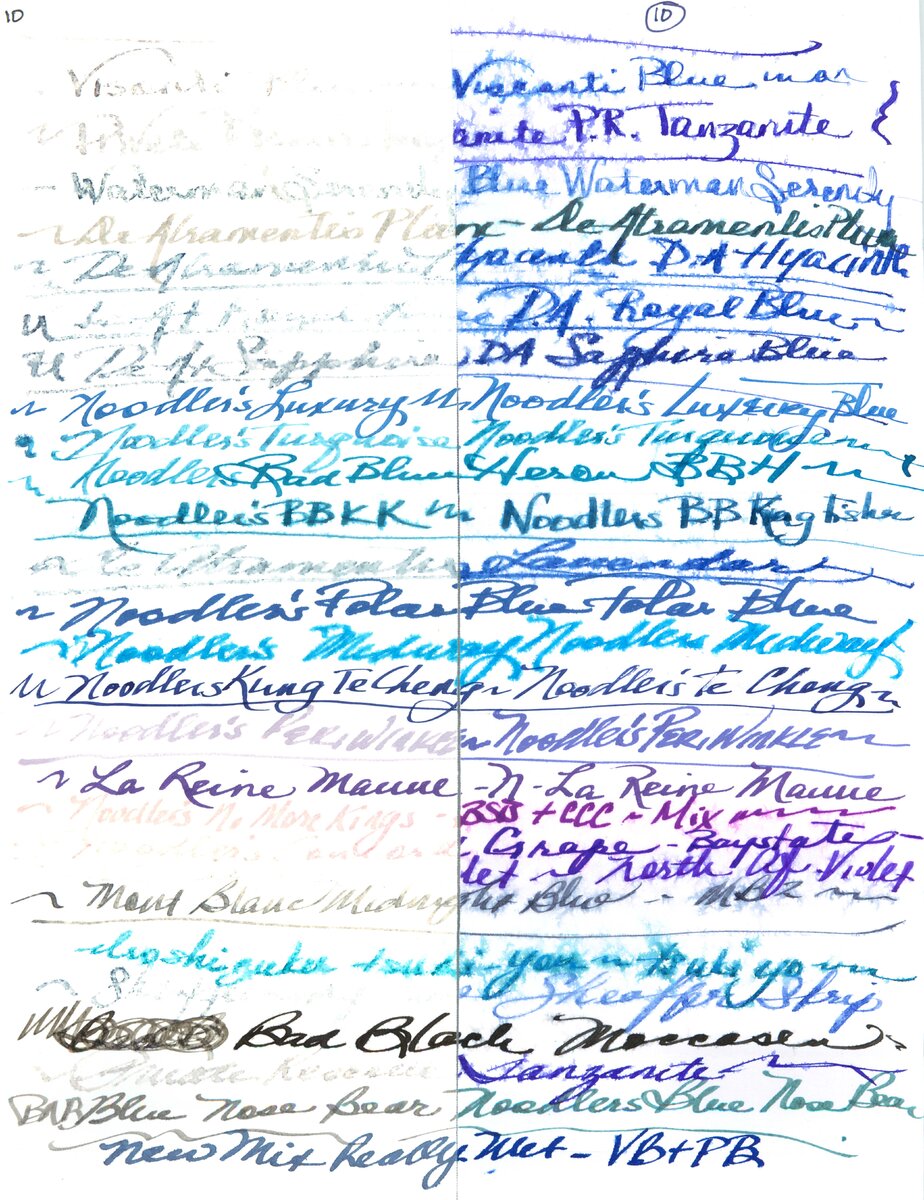 10 10
Visconti Visconti Blue
Private Tanzanite P.R. Tanzanite
Waterman Serenity Blue Waterman Serenity
De Atramentis Plum - De Atramentis Plum
De Atramentis Hyacinth D.A Hyacinth
D.A. Royal Blue
De At Sapphire DA Sapphire Blue
Noodler's Luxury Noodler's Luxury Blue
Noodler's Turquoise Noodler's Turquoise
Noodlers Bad Blue Heron BBH
Noodler's BBKK Noodlers BB Kingfisher
De Atramentis Lavender
Noodler's Polar Blue Polar Blue
Noodler's Midway Noodlers Midway
Noodlers Kung Te Cheng Noodler's Te Cheng
Noodler's PERIWINKLE Noodler's PERIWINKLE
La Reine Mauve - N - La Reine Mauve
Noodler's No More Kings - BSB + CCC ~ Mix
Grape - Baystate
North Af. Violet
Mont Blanc Midnight Blue - MB2
Iroshizuku tsuki-yo ~ tsuki yo
Sheaffer Skrip
Bad Black Moccasin
Private Reserve Tanzanite
BNB Blue Nose Bear Noodlers Blue Nose Bear
New Mix Really Wet - VB+PB